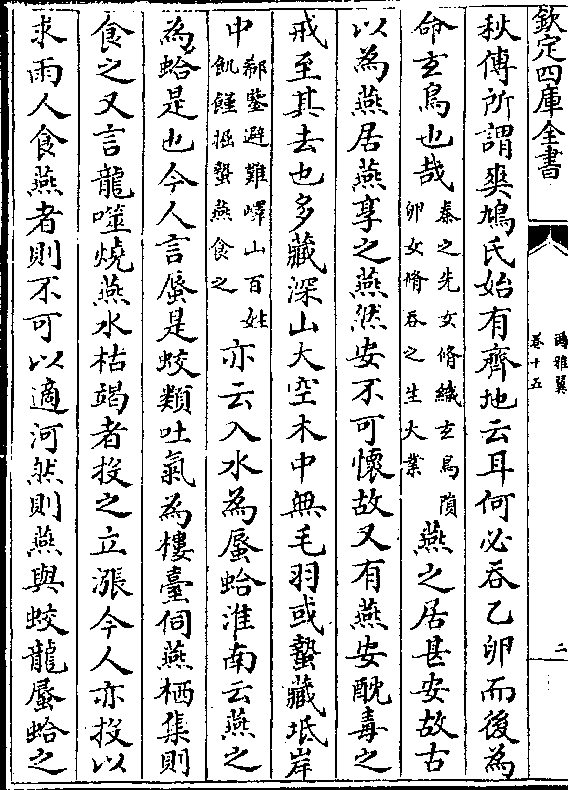 欽定四庫全書
爾雅翼
卷十五
二
秋傳所謂爽鳩氏始有齊地云耳何必吞乙卵而後為
命玄鳥也哉秦之先女脩織玄鳥隕
卵女脩吞之生大業燕之居甚安故古
以為燕居燕享之燕然安不可懷故又有燕安酖毒之
戒至其去也多藏深山大空木中無毛羽或蟄藏坻岸
中郗鑒避難嶧山百姓
飢饉掘蟄燕食之亦云入水為蜃蛤淮南云燕之
為蛤是也今人言蜃是蛟類吐氣為樓臺伺燕栖集則
食之又言龍嗜燒燕水枯竭者投之立漲今人亦投以
求雨人食燕者則不可以適河然則燕與蛟龍蜃蛤之